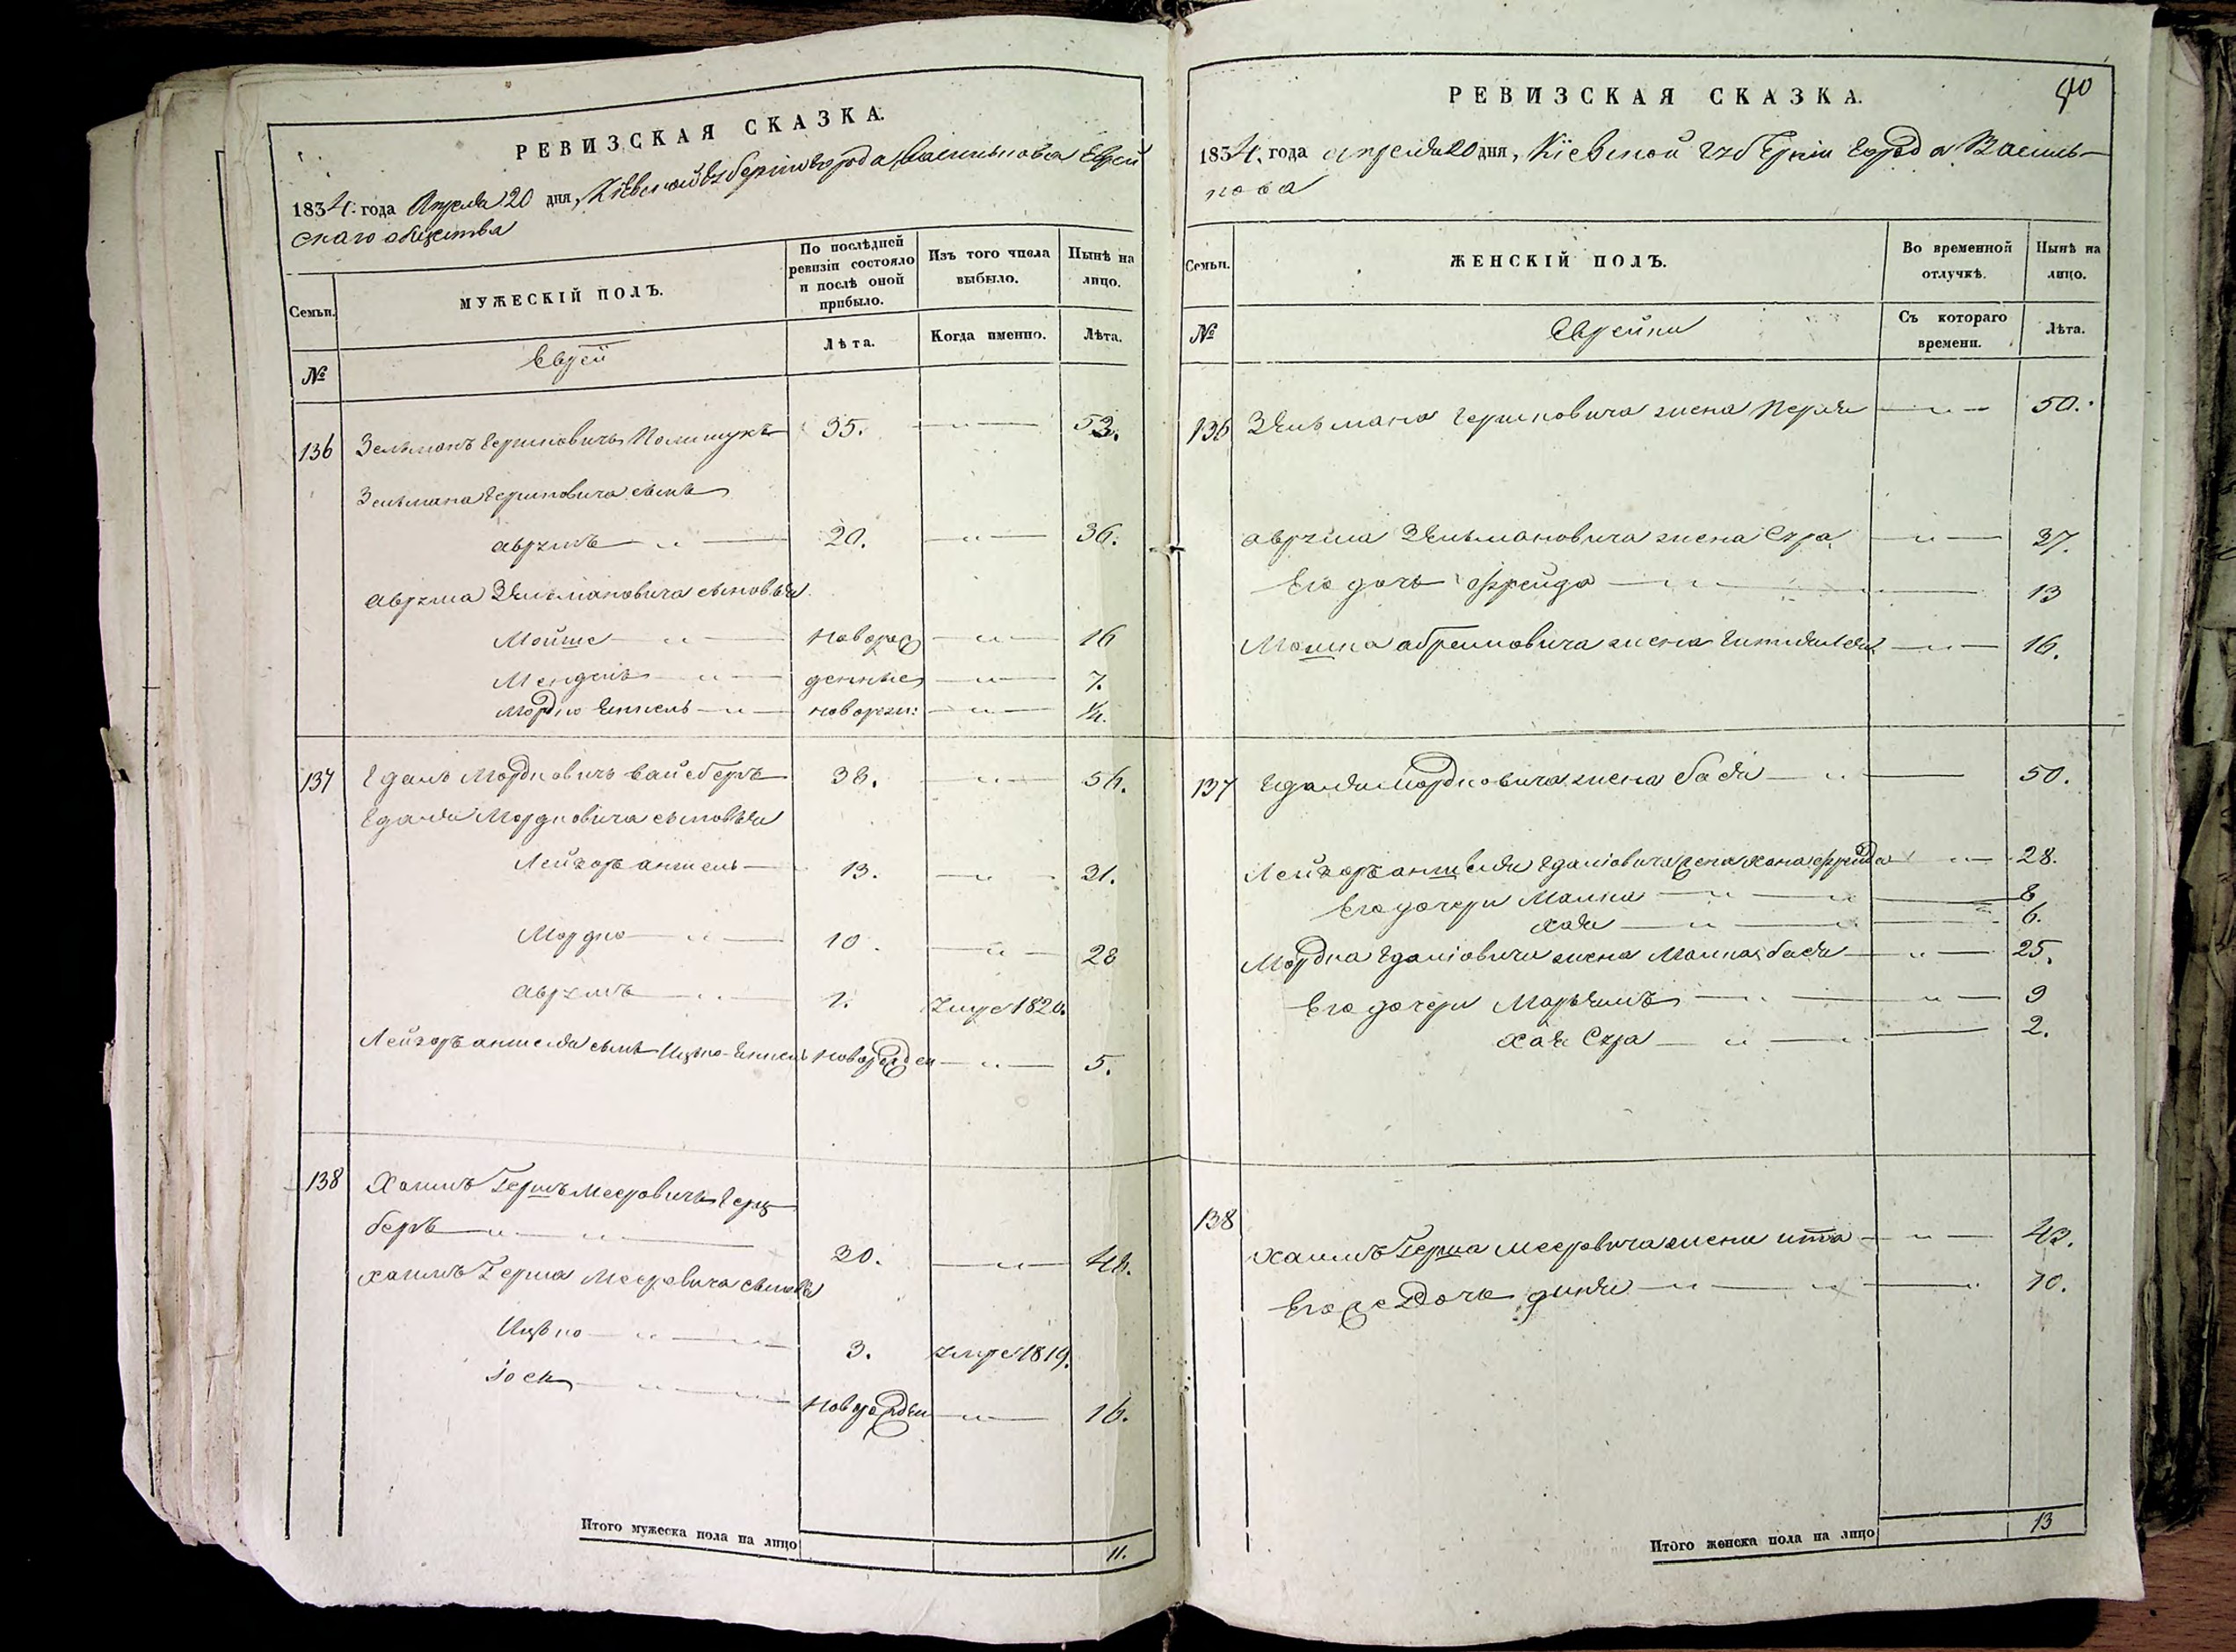 РЕВИЗСКАЯ СКАЗКА.
1834. года Апреля 20 дня, Кіевской губерніи города Василькова Еврей
скаго общества
Семьи.
МУЖЕСКІЙ ПОЛЪ.
По послѣдней ревизіи состояло и послѣ оной прибыло.
Изъ того числа выбыло.
Нынѣ на лицо.
№
Еврей
Лѣта.
Когда именно.
Лѣта.
136 Зельманъ Гершковичъ Полищукъ 35. — „ — 53.
Зельмана Гершковича сынъ
Аврумъ — „ — 20. — „ — 36.
Аврума Зельмановича сыновья
Мойше — „ — новорож — „ — 16
Мендель — „ — денные — „ — 7.
Мордко Екисель — „ — новорож: — „ — ½.
137 Гдаль Мордковичъ Вайсберъ 38. — „ — 56.
Гдаля Мордковича сыновья
Лейзоръ Аншель — 13. — „ — 31.
Мордко — „ — 10. — „ — 28
Аврумъ — „ — 1. умре 1820.
Лейзоръ Аншеля сынъ Ицко-Екисель новорожден — „ — 5.
138 Хаимъ Гершъ Мееровичъ Герц
беръ — „ — „ — 30. — „ — 46.
Хаимъ Герша Мееровича сыновья
Ицько — „ — 3. умре 1819.
Іось — „ — новорожден — „ — 16.
Итого мужеска пола на лицо 11.
РЕВИЗСКАЯ СКАЗКА. 40
1834. года апреля 20 дня, Кіевской губерніи города Василь-
кова
Семьи.
ЖЕНСКІЙ ПОЛЪ.
Во временной отлучкѣ.
Нынѣ на лицо.
№
Еврейки
Съ котораго времени.
Лѣта.
136 Зельмана Гершковича жена Перля — „ — 50.
Аврума Зельмановича жена Сура — „ — 37.
Его дочь Фрейда — „ — 13
Мошка Абрамовича жена — „ — 16.
137 Гдаля Мордковича жена Бася — „ — 50.
Лейзоръ Аншеля Гдаліовича жена Хана Фрейда — „ — 28.
Его дочери Малка — „ — „ — 8
Хая — „ — „ — 6.
Мордка Гдаліовича жена Малка Бася — „ — 25.
Его дочери Марьямъ — „ — „ — 9
Хая Сура — „ — „ — 2.
138 Хаимъ Герша Мееровича жена Ита — „ — 43.
Его же Дочь Диня — „ — „ — 10.
Итого женска пола на лицо 13